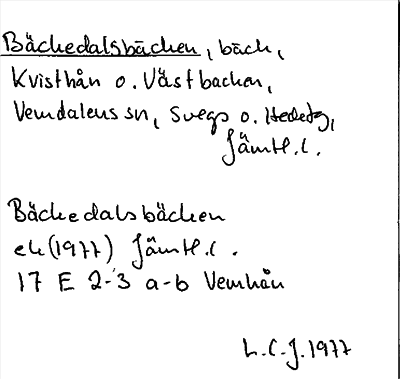 Bäckedalsbäcken, bäck,
Kvisthån o. Västbacken,
Vemdalens sn, Svegs o. Hedetg,
Jämtl.l.
Bäckedalsbäcken
ek (1977) Jämtl.l.
17 E 2-3 a-b Vemhån
L.C.J. 1977